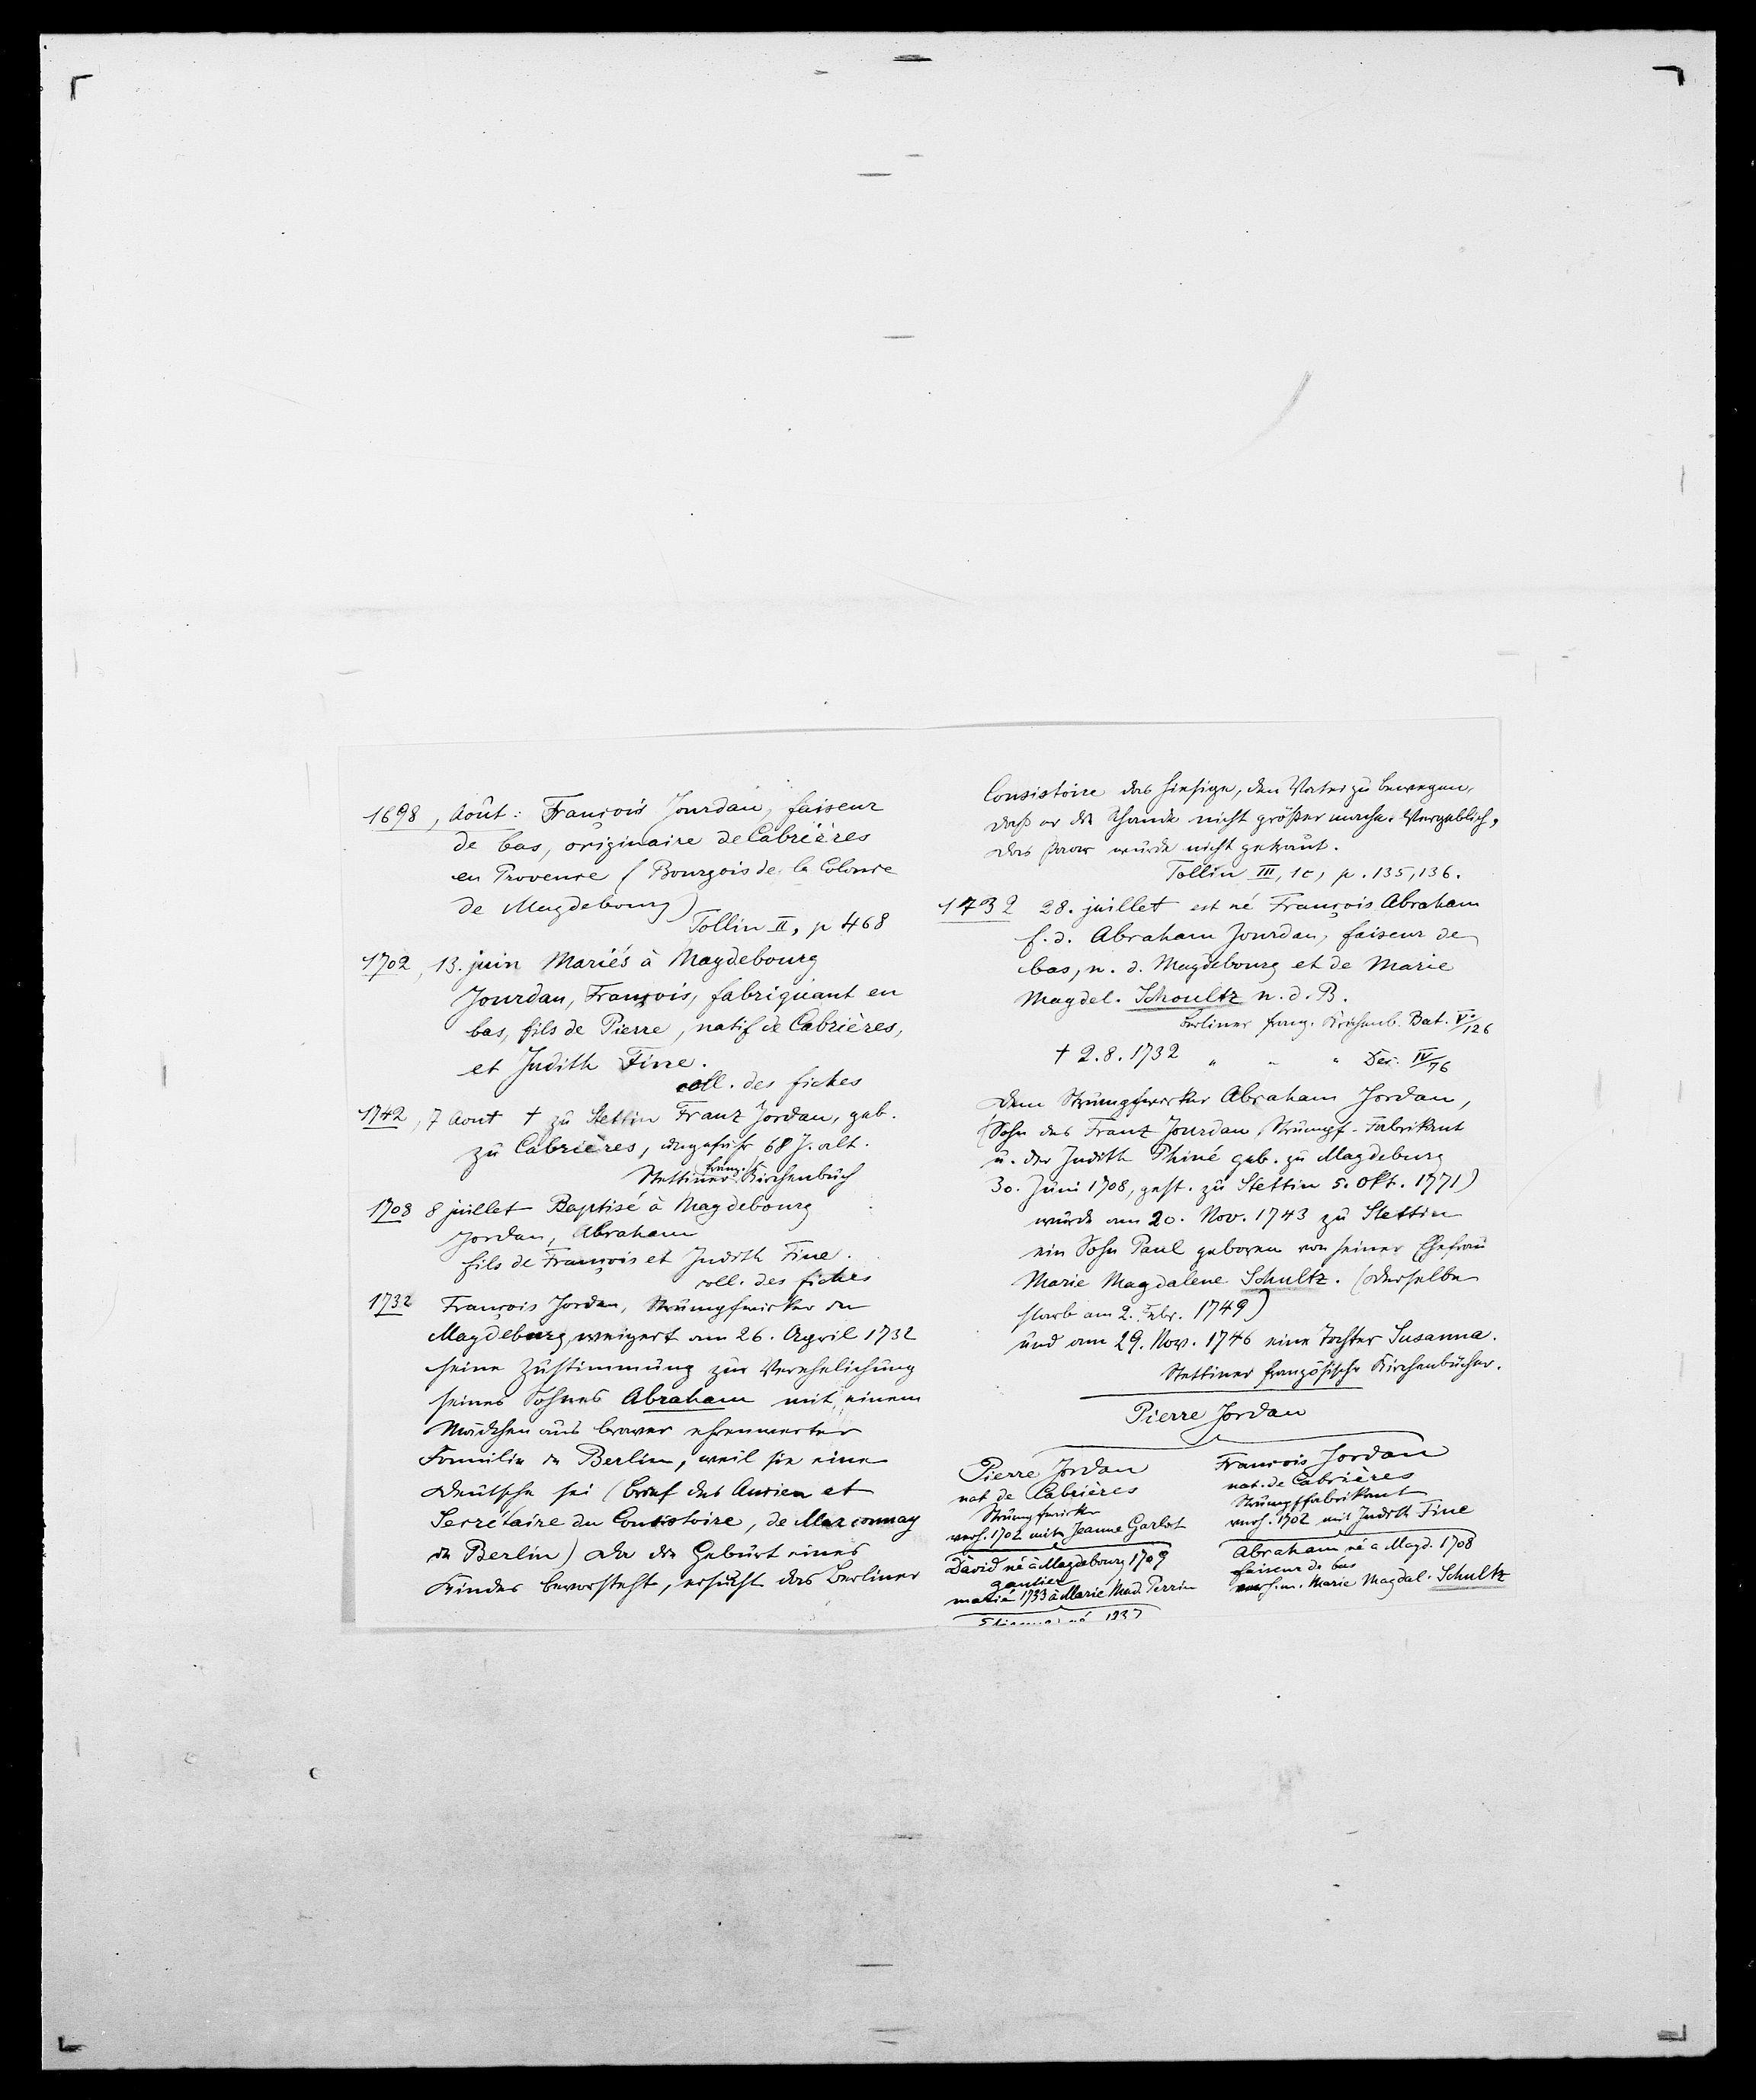 1698, Août: François Jourdan, faiseur
de bas, originaire de Cabrières
en Provence (Bourgois de la Colonie
de Magdebourg)
Tollin II, p 468
1702, 13. juin Mariés à Magdebourg
Jourdan, François, fabriquant en
bas, fils de Pierre, natif de Cabrières,
et Judith Fine.
coll. des fiches
1742, 7 Aout † zu Stettin Franz Jordan, geb.
zu Cabrières, ungefähr 68 J. alt.
Stettiner franz. Kirchenbuch
1708 8 juillet Baptisé à Magdebourg
Jordan, Abraham
fils de François et Judith Fine.
coll. des fiches
1732 François Jordan, Strumpfwirker in
Magdeburg, weigert am 26. April 1732
seine Zustimmung zur Verehelichung
seines Sohnes Abraham mit einem
Mädchen aus braver ehrenwerter
Familie in Berlin, weil sie eine
Deutsche sei (Brief des Ancien et
Secrétaire du Consistoire, de Marconnay
in Berlin) Da die Geburt eines
Kindes bevorsteht, ersucht das Berliner
Consistoire das hiesige, den Vater zu bewegen,
daß er die Schande nicht größer mache. Vergeblich,
das Paar wurde nicht getraut.
Tollin III, 1c, p. 135, 136.
1732 28. juillet est né François Abraham
f. d. Abraham Jourdan, faiseur de
bas, n. d. Magdebourg et de Marie
Magdel. Schoultz n. d. B.
Berliner franz. Kirchenb. Bat. V/126
† 2.8.1732 " " " Dec. IV/76
Dem Strumpfwirker Abraham Jordan,
(Sohn des Franz Jourdan, Strumpf-Fabrikant
u. der Judith Phiné geb. zu Magdeburg
30. Juni 1708, gest. zu Stettin 5. Okt. 1771)
wurde am 20. Nov. 1743 zu Stettin
ein Sohn Paul geboren von seiner Ehefrau
Marie Magdalene Schultz. (Derselbe
starb am 2. Febr. 1749)
und am 29. Nov. 1746 eine Tochter Susanna.
Stettiner französische Kirchenbücher.
Pierre Jordan
Pierre Jordan
nat de Cabrières
Strumpfwirker
verh. 1702 mit Jeanne Garlot
David né à Magdebourg 1709
gantier
marié 1733 à Marie Mad. Perrin
François Jordan
nat. de Cabrières
Strumpffabrikant
verh. 1702 mit Judith Fine
Abraham né a Magd. 1708
faiseur de bas
verh. m. Marie Magdal. Schultz